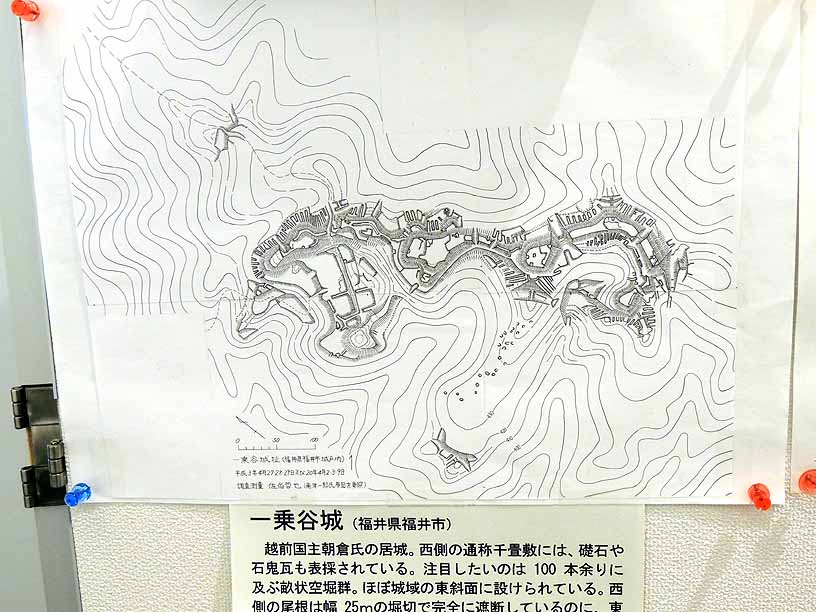 0 50 100
一乗谷城址(福井県福井市城戸ノ内)
調査測量 佐伯哲也
一乗谷城(福井県福井市)
越前国主朝倉氏の居城。西側の通称千畳敷には、礎石や
石鬼瓦も表採されている。注目したいのは 100 本余りに
及ぶ畝状空堀群。ほぼ城域の東斜面に設けられている。西
側の尾根は幅 25mの堀切で完全に遮断しているのに、東